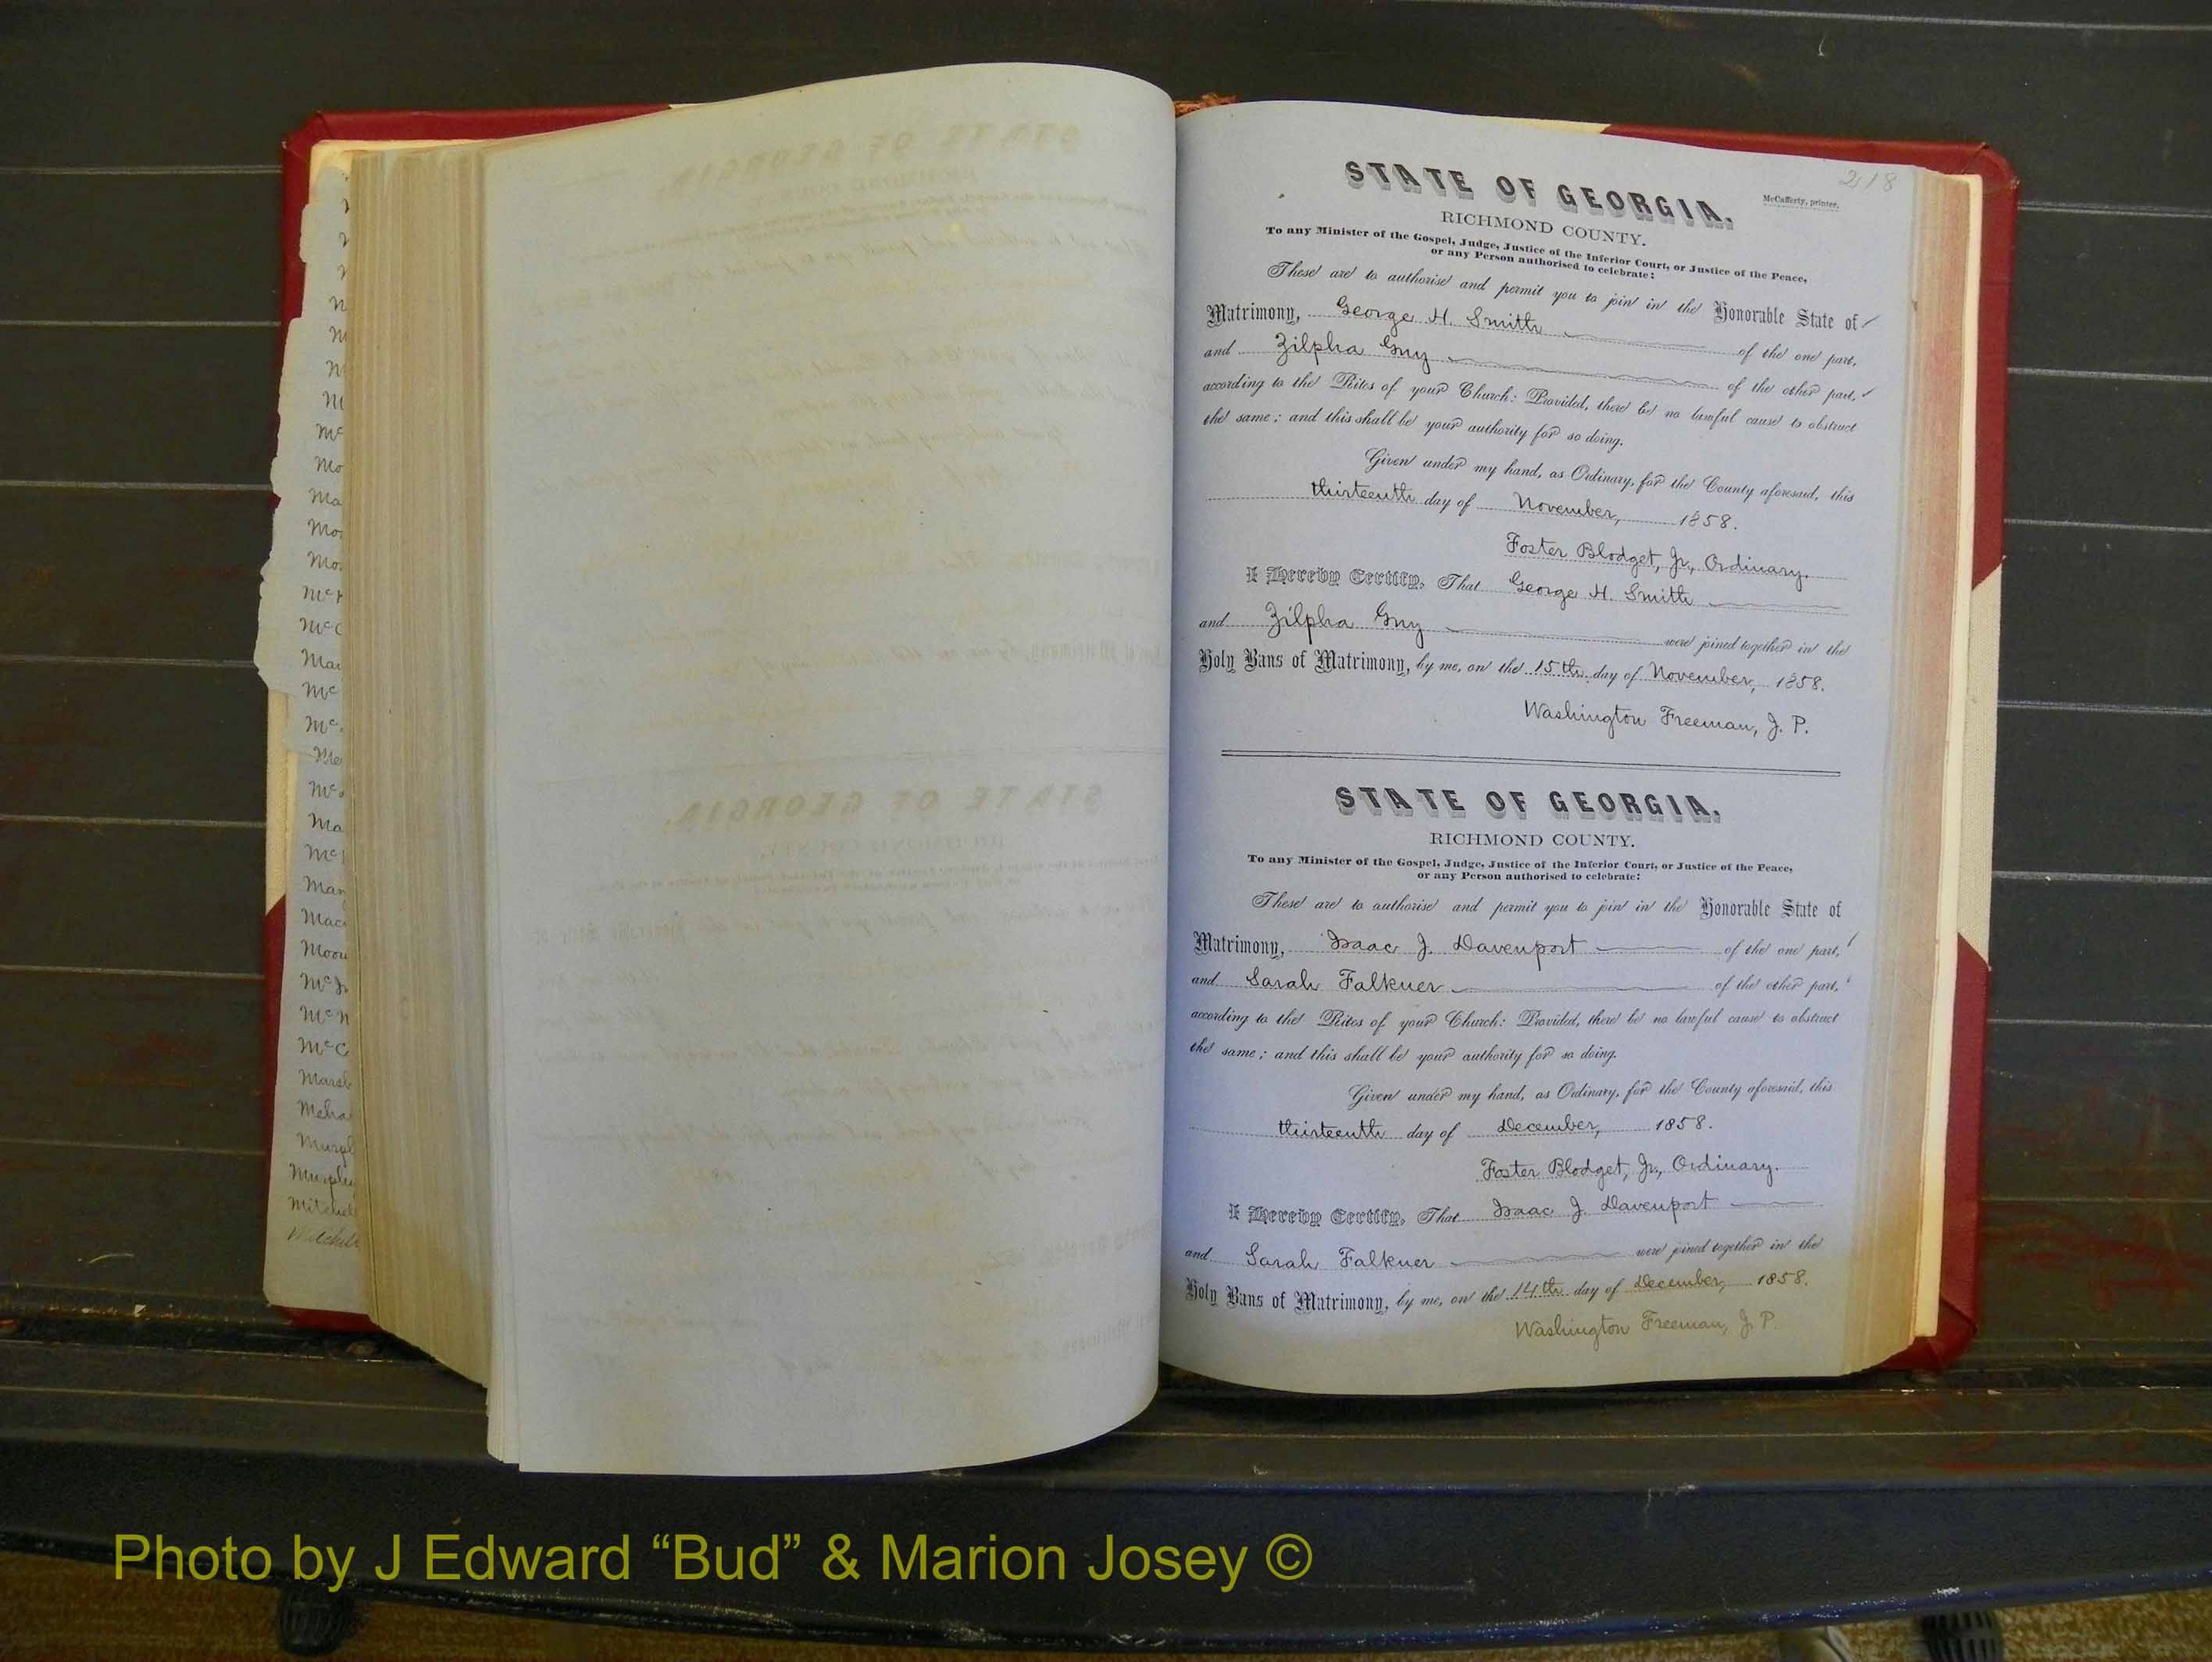 m
Mc
Mo
Ma
Mo
Mo
McK
McC
Mar
Mc
Mc
Me
Mc
Ma
Mc
Man
Mac
Moon
Mc
McN
McC
Marsh
Meha
Murph
Murphy
Mitchel
Mitchell
218
STATE OF GEORGIA.
McCafferty, printer.
RICHMOND COUNTY.
To any Minister of the Gospel, Judge, Justice of the Inferior Court, or Justice of the Peace,
or any Person authorised to celebrate:
These are to authorise and permit you to join in the Honorable State of
Matrimony, George H. Smith of the one part,
and Zilpha Guy of the other part,
according to the Rites of your Church: Provided, there be no lawful cause to obstruct
the same; and this shall be your authority for so doing.
Given under my hand, as Ordinary, for the County aforesaid, this
thirteenth day of November, 1858.
Foster Blodget, Jr., Ordinary.
I Hereby Certify, That George H. Smith
and Zilpha Guy were joined together in the
Holy Bans of Matrimony, by me, on the 15th day of November, 1858.
Washington Freeman, J. P.
STATE OF GEORGIA.
RICHMOND COUNTY.
To any Minister of the Gospel, Judge, Justice of the Inferior Court, or Justice of the Peace,
or any Person authorised to celebrate:
These are to authorise and permit you to join in the Honorable State of
Matrimony, Isaac J. Davenport of the one part,
and Sarah Falkner of the other part,
according to the Rites of your Church: Provided, there be no lawful cause to obstruct
the same; and this shall be your authority for so doing.
Given under my hand, as Ordinary, for the County aforesaid, this
thirteenth day of December, 1858.
Foster Blodget, Jr., Ordinary.
I Hereby Certify, That Isaac J. Davenport
and Sarah Falkner were joined together in the
Holy Bans of Matrimony, by me, on the 14th day of December, 1858.
Washington Freeman, J. P.
Photo by J Edward “Bud” & Marion Josey ©